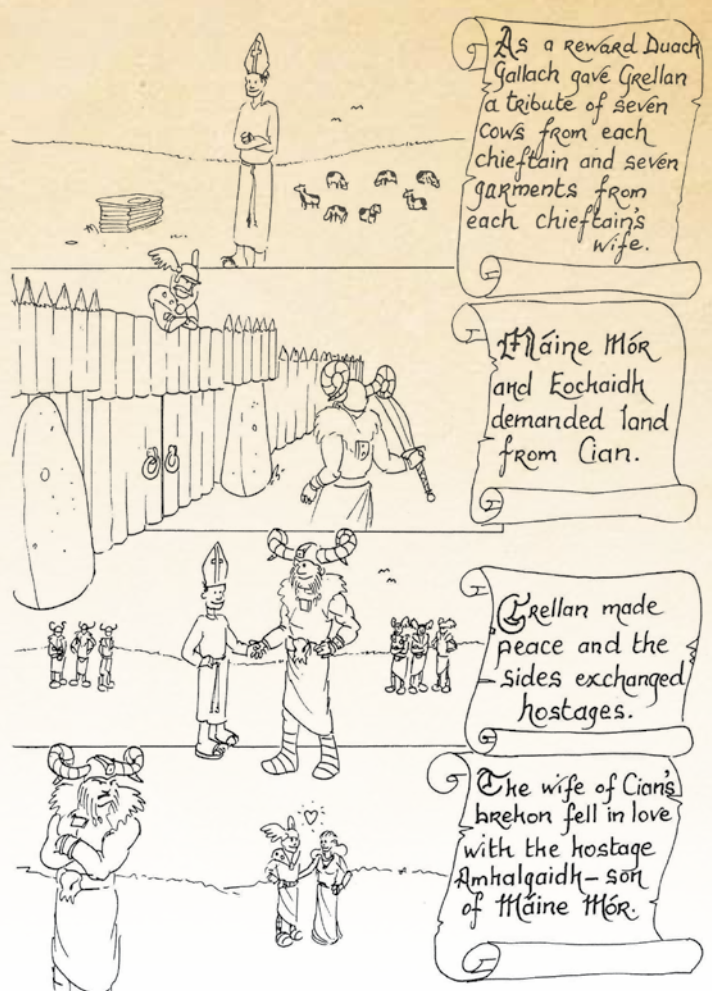 As a reward Duach
Gallach gave Grellan
a tribute of seven
cows from each
chieftain and seven
garments from
each chieftain's
wife.
Máine Mór
and Eochaidh
demanded land
from Cian.
Grellan made
peace and the
sides exchanged
hostages.
The wife of Cian's
brehon fell in love
with the hostage
Amhalgaidh – son
of Máine Mór.